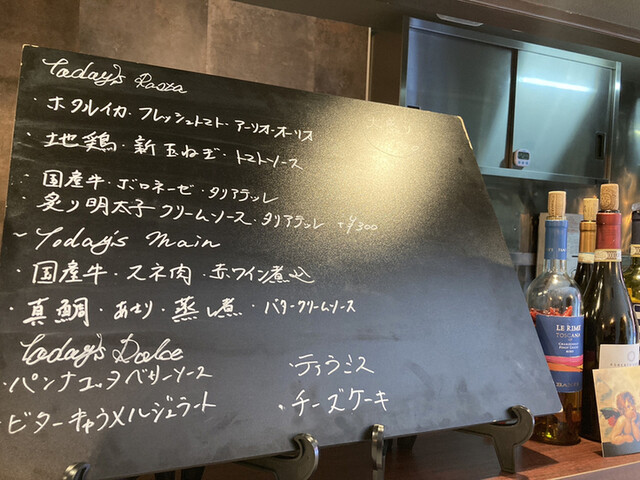 Today's Pasta
・ホタルイカ・フレッシュトマト・アーリオ・オーリス
・地鶏・新玉ねぎ・トマトソース
・国産牛・ボロネーゼ・タリアテッレ
・炙り明太子クリームソース・タリアテッレ +¥300
~Today's Main
・国産牛・スネ肉・赤ワイン煮込
・真鯛・あさり・蒸し煮・バタークリームソース
Today's Dolce
・パンナコッタベリーソース
・ティラミス
・ビターキャラメルジェラート
・チーズケーキ
LE RIME
TOSCANA